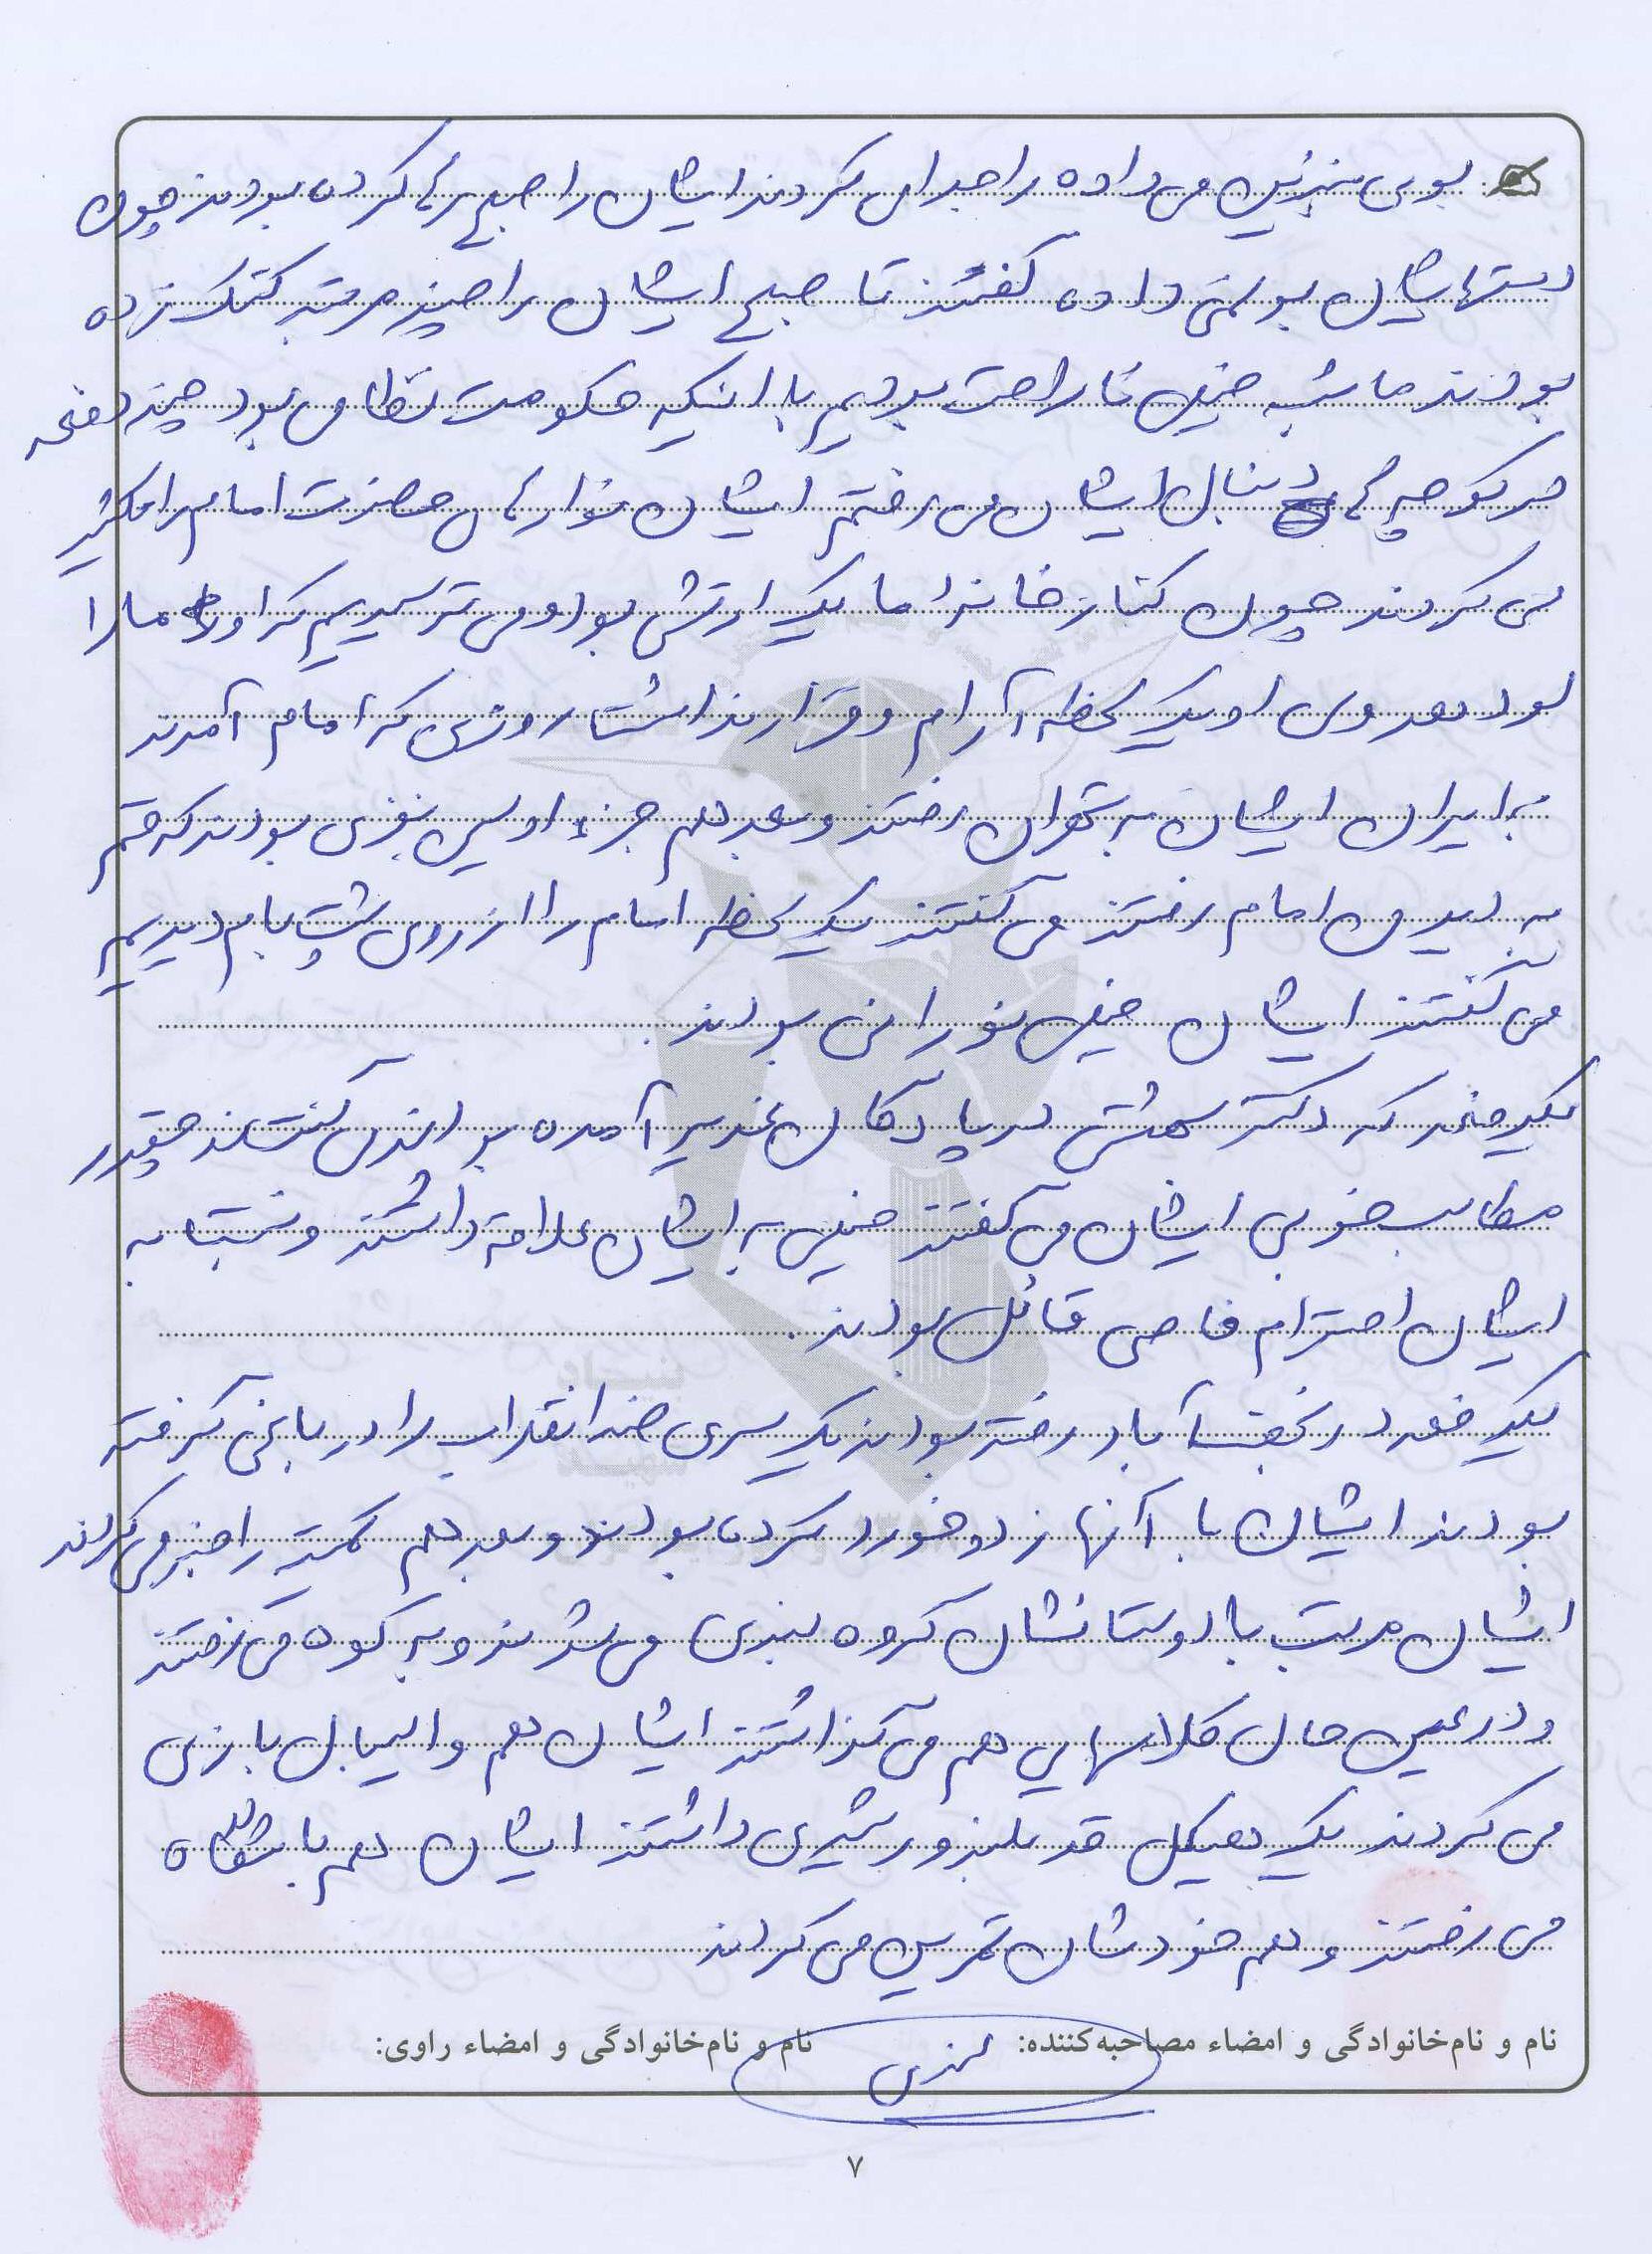 بوی بنزین می داده را جدا می کردند ایشان را صبح رها کرده بودند چون
دستهایشان بو نمی داده گفتند تا صبح ایشان را چند مرتبه کتک زده
بودند ما شب خیلی ناراحت بودیم با اینکه حکومت نظامی بود چند دفعه
در کوچه ها دنبال ایشان می رفتم ایشان نوارهای حضرت امام را تکثیر
می کردند چون کنار خانه ما یک ارتشی بود و می ترسیدیم که او ما را
لو دهد ولی او یک لحظه آرام و قرار نداشت روزی که امام آمدند
به ایران ایشان به تهران رفتند و بعد هم جزء اولین نفری بودند که قم
به دیدن امام رفتند می گفتند یک لحظه امام را از روی پشت بام دیدیم
می گفتند ایشان خیلی نورانی بودند.
یکدفعه که دکتر بهشتی در پادگان غدیر آمده بودند می گفتند چقدر
مطالب خوبی ایشان می گفتند خیلی به ایشان علاقه داشتند و نسبت به
ایشان احترام خاصی قائل بودند.
یک دفعه در نجف آباد رفته بودند یک سری ضد انقلاب را در باغی گرفته
بودند ایشان با آنها زد و خورد کرده بودند و بعد هم کمیته را خبر می کردند
ایشان مرتب با دوستانشان گروه بندی می شدند و به کوه می رفتند
و در عین حال کلاسهایی هم می گذاشتند ایشان هم والیبال بازی
می کردند یک هیکل قد بلند و رشیدی داشتند ایشان هم باشگاه
می رفتند و هم خودشان تمرین می کردند
نام و نام‌خانوادگی و امضاء مصاحبه‌کننده: نام و نام‌خانوادگی و امضاء راوی:
۷